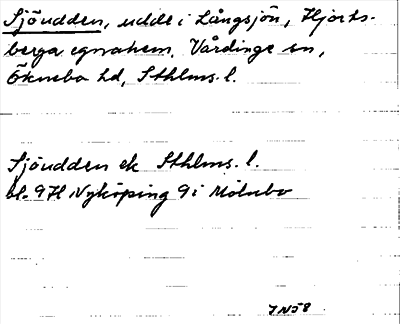 Sjöudden, udde i Långsjön, Hjorts-
berga egnahem, Vårdinge sn,
Öknebo hd, Sthlms. l.
Sjöudden ek Sthlms. l.
bl. 9H Nyköping 9i Mölnbo
JN58